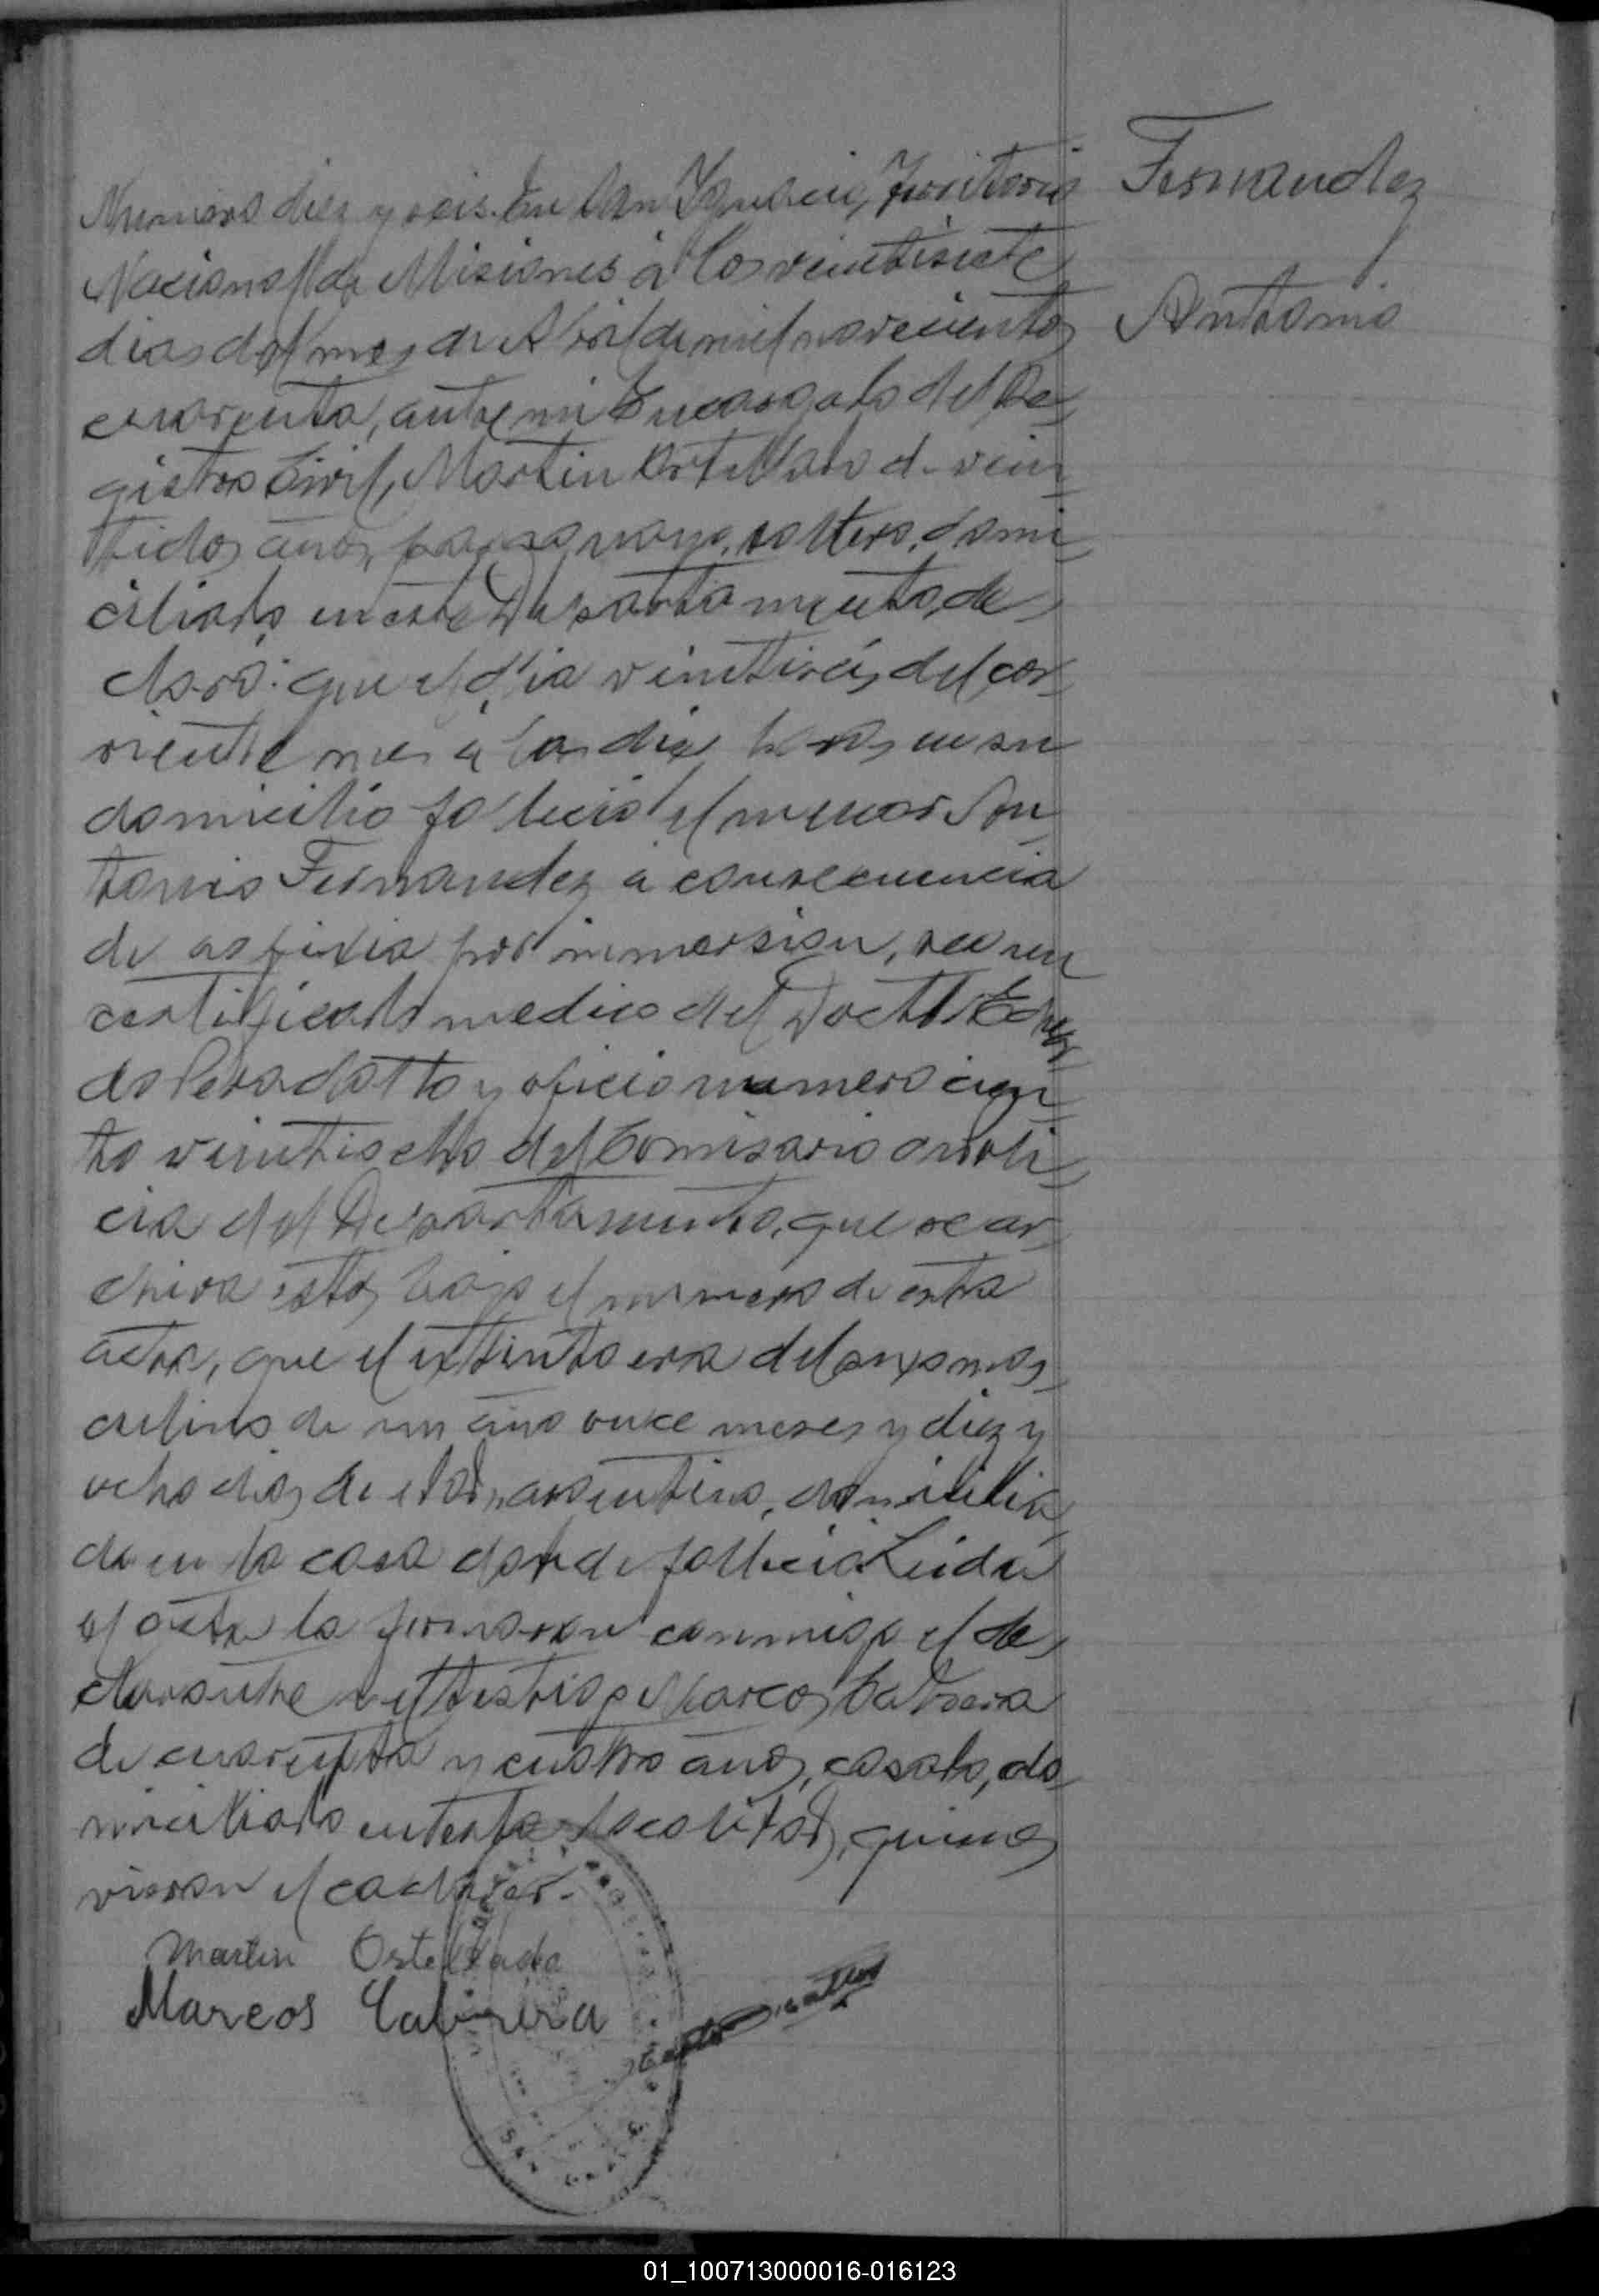 Numero diez y seis. En San Ignacio, Territorio
Nacional de Misiones á los veintisiete
dias del mes de Abril de mil novecientos
cuarenta, ante mi Encargado del Re-
gistro Civil, Martin Ortellado de vein-
tidos años, paraguayo, soltero, domi-
ciliado en este Departamento, de-
claró: que el dia veintiseis del cor-
riente mes á las diez horas en su
domicilio falleció el menor An-
tonio Fernandez á consecuencia
de asfixia por inmersion, segun
certificado medico del Doctor Eduar-
do Peradotto y oficio numero cien-
to veintiocho del Comisario de Poli-
cia del Departamento, que se ar-
chiva estos bajo el numero de esta
acta, que el extinto era del sexo mas-
culino de un año once meses y diez y
ocho dias de edad, argentino, domicilia-
do en la casa donde falleció. Leida
el acta la firmaron conmigo el de-
clarante y el testigo Marcos Cabrera
de cuarenta y cuatro años, casado, do-
miciliado en esta localidad, quienes
vieron el cadaver.
Martin Ortellado
Marcos Cabrera
Fernandez
Antonio
01_100713000016-016123